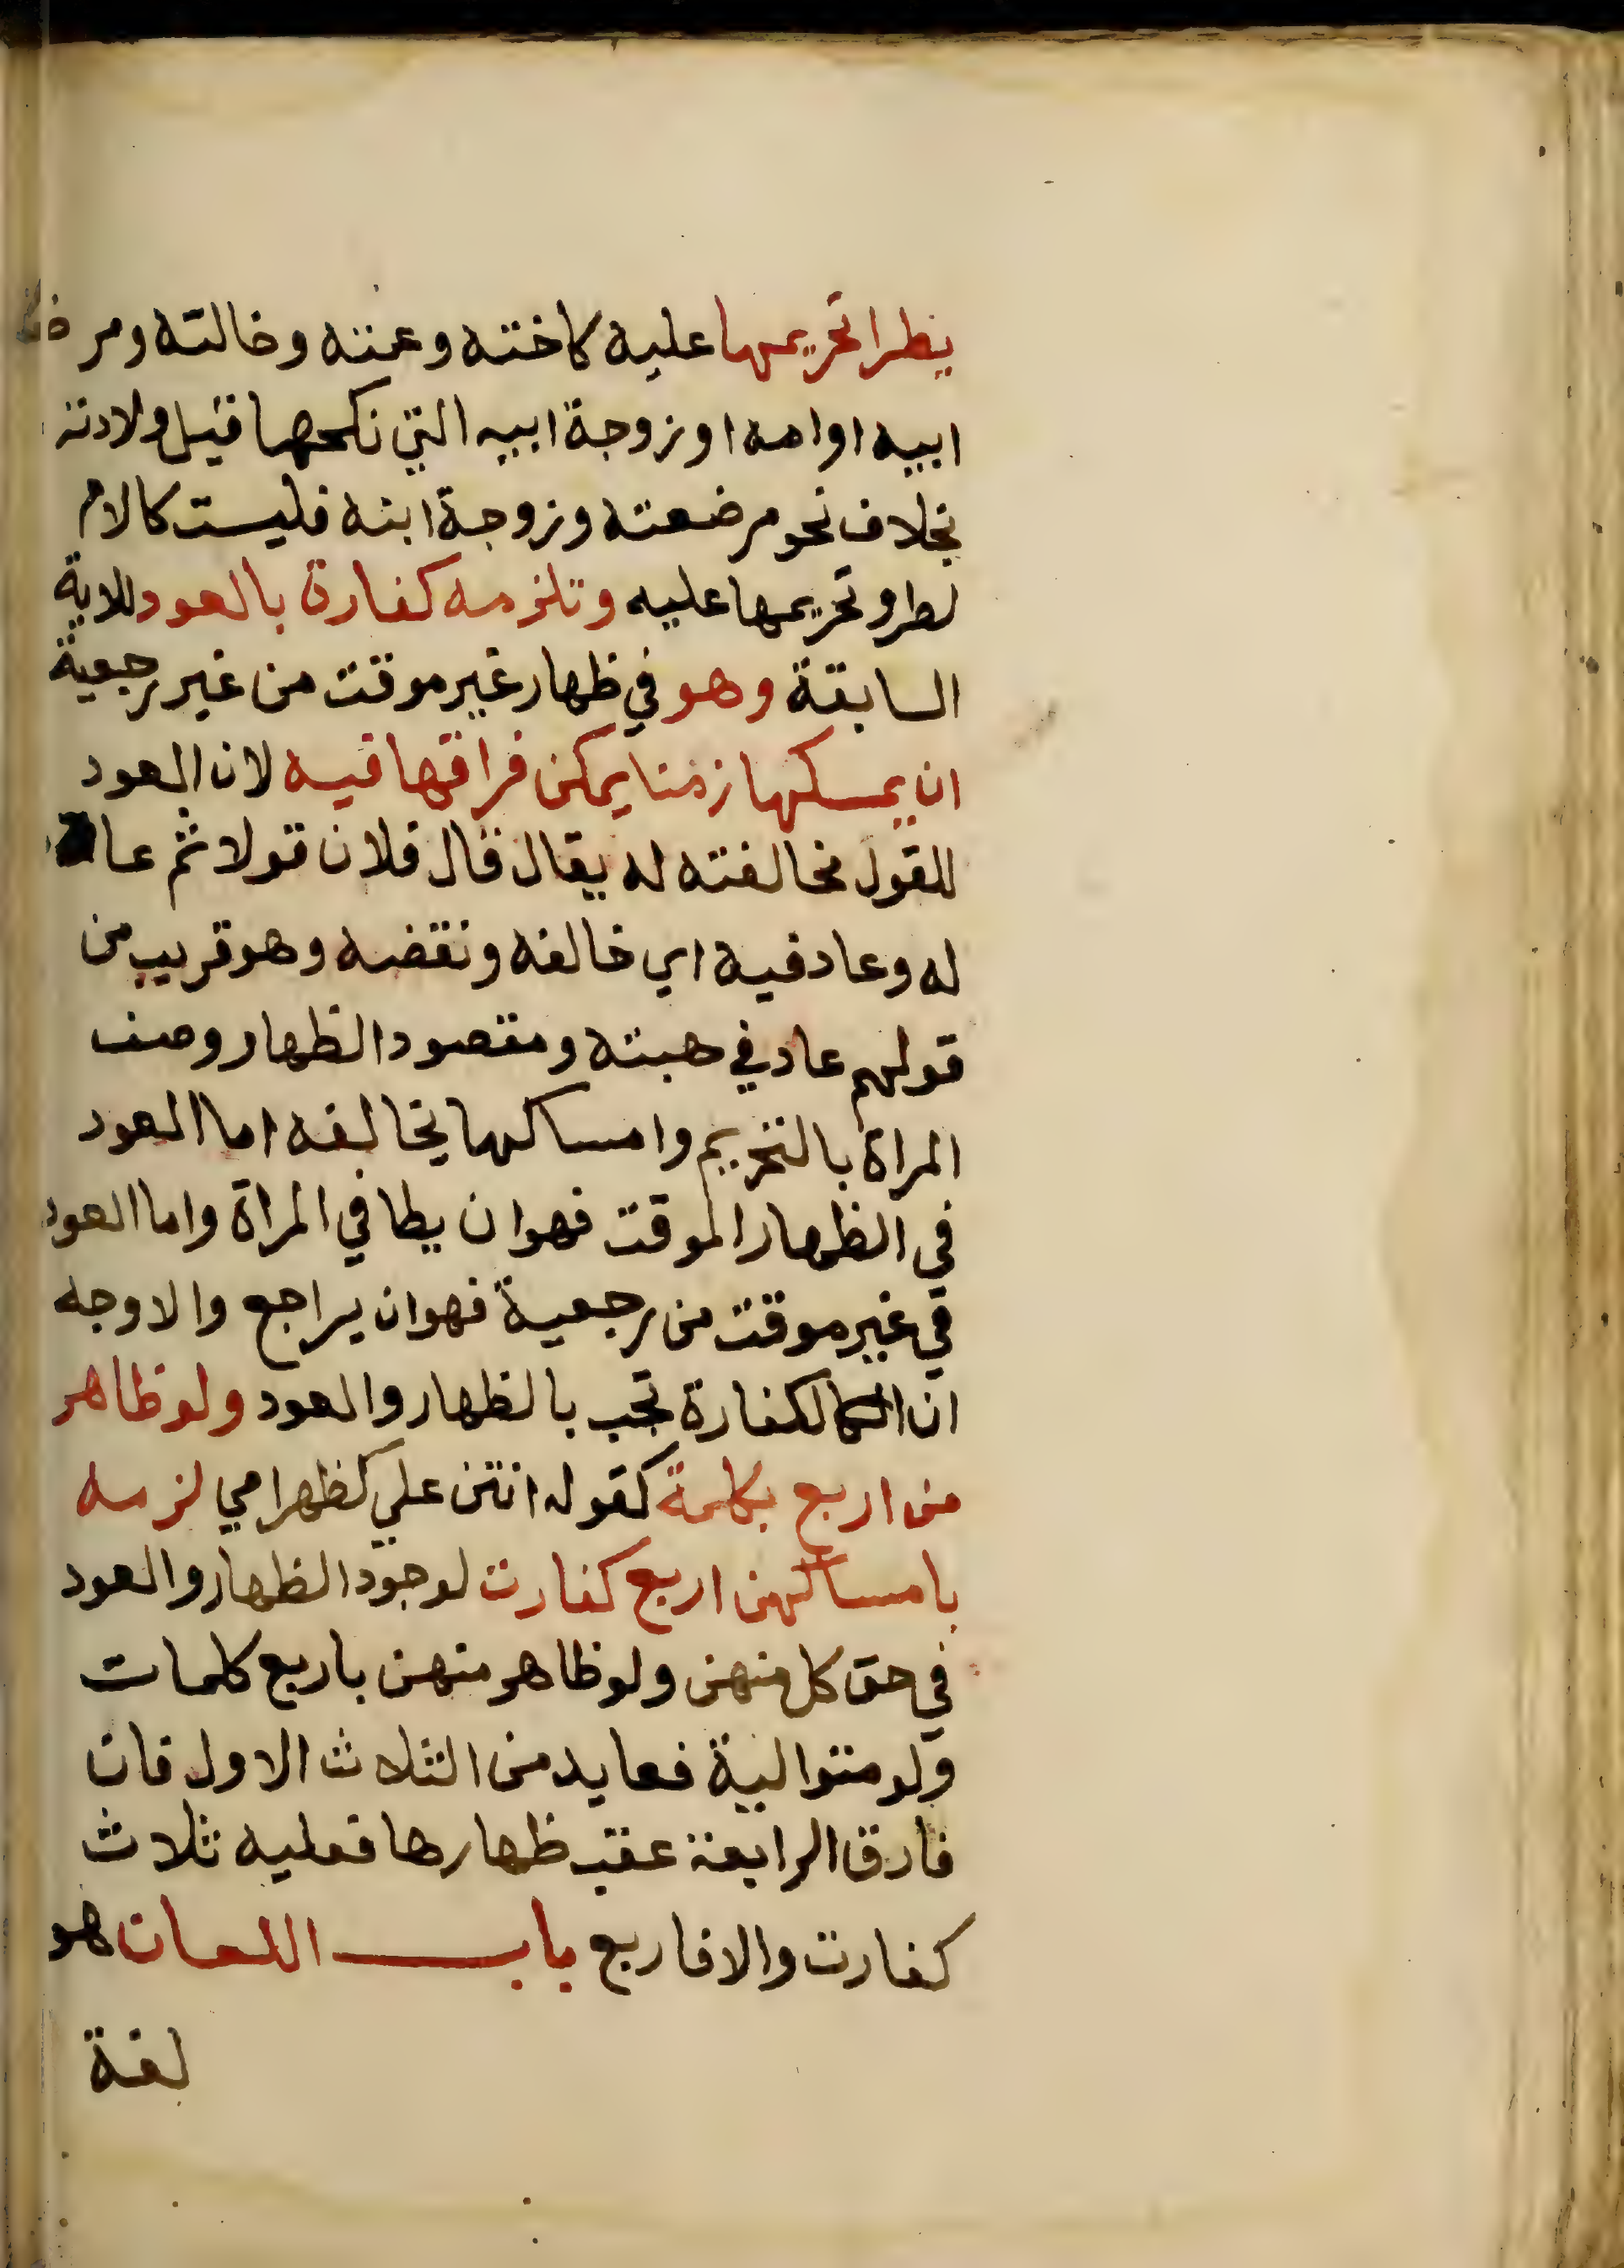 يطرا تحريمها عليه كاخته وعمته وخالته ومرضعة
ابيه او امه او زوجة ابيه التي نكحها قبل ولادته
بخلاف نحو مرضعته وزوجة ابنه فليست كالام
لطرو تحريمها عليه وتلزمه كفارة بالعود للاية
السابقة وهو في ظهار غير موقت من غير رجعية
ان يمسكها زمنا يمكن فراقها فيه لان العود
للقول مخالفته له يقال قال فلان قولا ثم عاد
له وعاد فيه اي خالفه ونقضه وهو قريب من
قولهم عاد في هبته ومقصود الظهار وصف
المراة بالتحريم وامساكها يخالفه اما العود
في الظهار الموقت فهو ان يطا في المراة واما العود
في غير موقت من رجعية فهو ان يراجع والاوجه
ان الكفارة تجب بالظهار والعود ولو ظاهر
من اربع بكلمة كقوله انتن علي كظهر امي لزمه
بامساكهن اربع كفارت لوجود الظهار والعود
في حق كل منهن ولو ظاهر منهن باربع كلمات
ولو متوالية فعايد من الثلاث الاول فان
فارق الرابعة عقب ظهارها فعليه ثلاث
كفارت والا فاربع باب اللعان هو
لغة